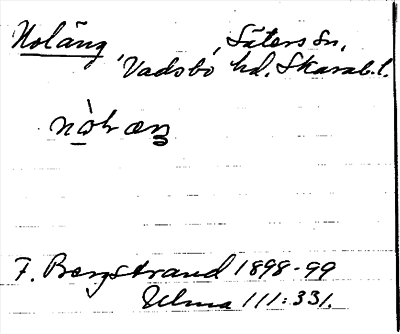 Noläng, Säters sn,
Vadsbo hd. Skarab.l.
F. Bergstrand 1898-99
Ulma 111:331.